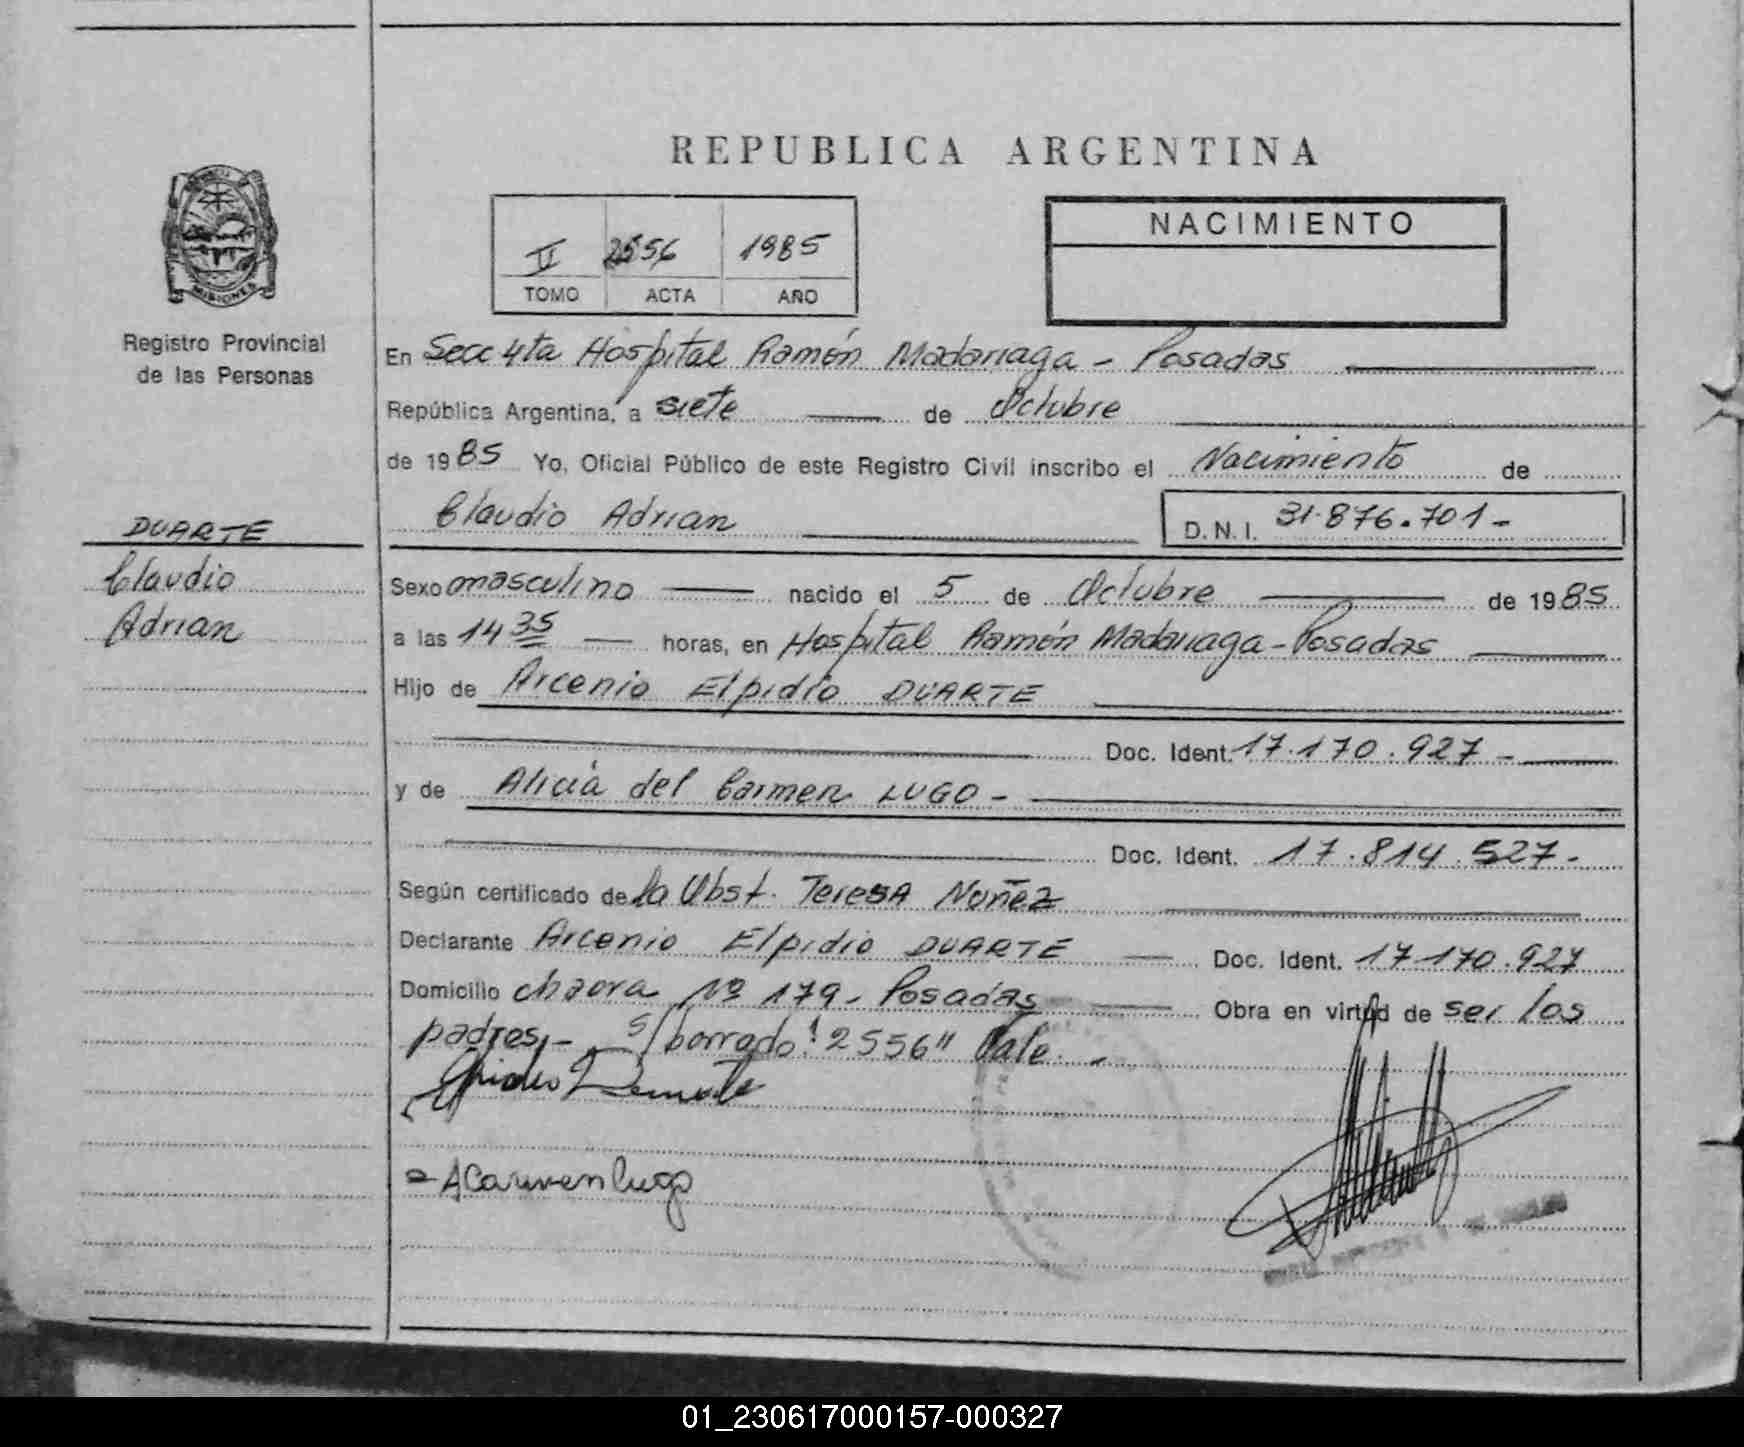 REPUBLICA ARGENTINA
MISIONES
Registro Provincial
de las Personas
II 2556 1985
TOMO ACTA AÑO
NACIMIENTO
En Secc 4ta Hospital Ramón Madariaga - Posadas
República Argentina, a siete de Octubre
de 1985 Yo, Oficial Público de este Registro Civil inscribo el Nacimiento de
Claudio Adrian D.N.I. 31.876.701-
DUARTE
Claudio
Adrian
Sexo masculino nacido el 5 de Octubre de 1985
a las 14 35 horas, en Hospital Ramón Madariaga - Posadas
Hijo de Arcenio Elpidio DUARTE
Doc. Ident. 17.170.927-
y de Alicia del Carmen LUGO-
Doc. Ident. 17.814.527-
Según certificado de la Obst. Teresa Nuñez
Declarante Arcenio Elpidio DUARTE Doc. Ident. 17.170.927
Domicilio chacra Nº 179- Posadas Obra en virtud de ser los
padres,- s/borrado: "2556" Vale.-
A Carmen Lugo
01_230617000157-000327